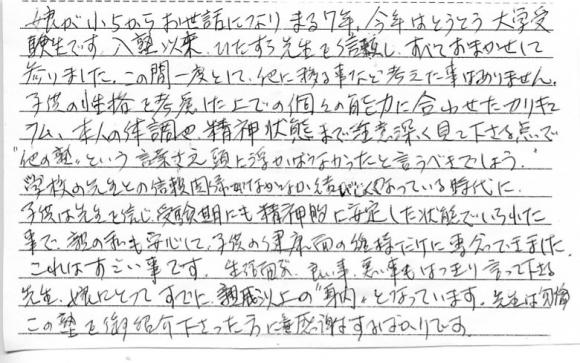 娘が小5からお世話になり まる7年。今年はとうとう 大学受
験生です。入塾以来、ひたすら先生を信頼し、すべておまかせして
参りました。この間一度として、他に移る事など考えた事はありません。
子供の性格を考慮した上での個々の能力に合わせたカリキュ
ラム、本人の体調や精神状態まで注意深く見て下さる点で
"他の塾"という言葉さえ頭に浮かばなかったと言うべきでしょう。
学校の先生との信頼関係がなかなか結びにくくなっている時代に、
子供は先生を信じ、受験期にも精神的に安定した状態でいられた
事で、親の私も安心して、子供の健康面の維持だけに専念できました。
これはすごい事です。生活面、良い事、悪い事もはっきり言って下さる
先生、娘にとって すでに、親戚以上の"身内"となっています。先生は勿論
この塾を御紹介下さった方に 感謝するばかりです。